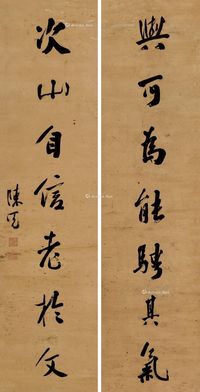 與可為能騁其氣
次山自信老於文
陳兆